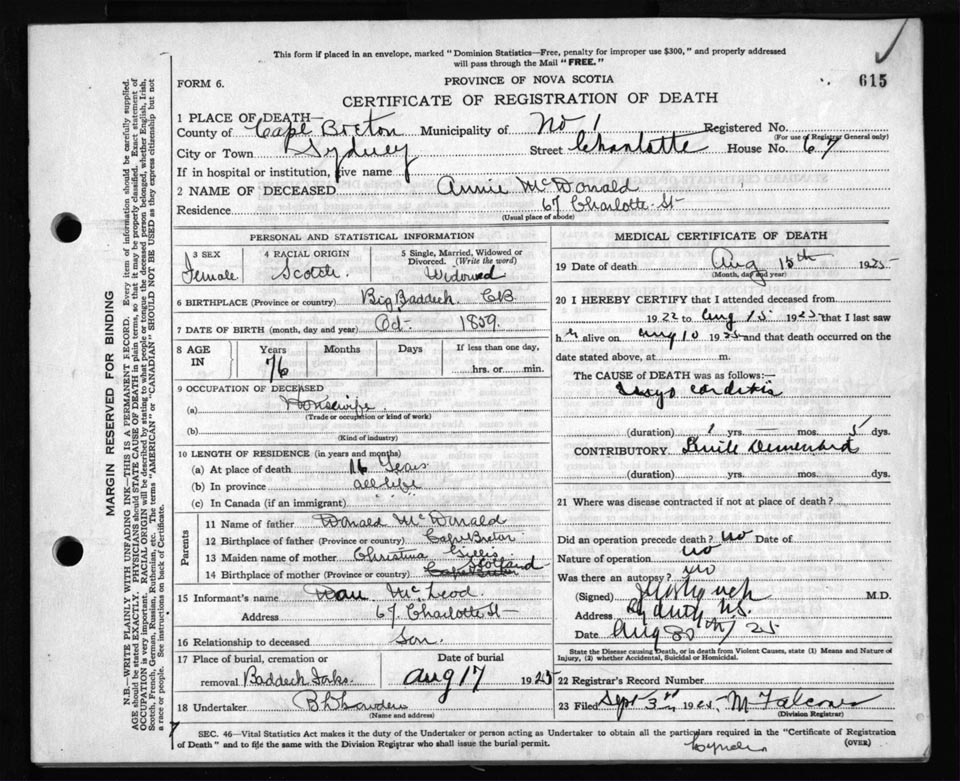 This form if placed in an envelope, marked "Dominion Statistics—Free, penalty for improper use $300," and properly addressed
will pass through the Mail "FREE."
FORM 6.
PROVINCE OF NOVA SCOTIA
615
CERTIFICATE OF REGISTRATION OF DEATH
1 PLACE OF DEATH—
County of Cape Breton Municipality of No 1 Registered No.
(For use of Registrar General only)
City or Town Sydney Street Charlotte House No. 67
If in hospital or institution, give name
2 NAME OF DECEASED Annie McDonald
Residence 67 Charlotte St
(Usual place of abode)
PERSONAL AND STATISTICAL INFORMATION
3 SEX
Female
4 RACIAL ORIGIN
Scotch
5 Single, Married, Widowed or
Divorced. (Write the word)
Widowed
6 BIRTHPLACE (Province or country) Big Baddeck CB
7 DATE OF BIRTH (month, day and year) Oct 1859
8 AGE
IN
Years
76
Months
Days
If less than one day,
hrs. or min.
9 OCCUPATION OF DECEASED
(a) Housewife
(Trade or occupation or kind of work)
(b)
(Kind of industry)
10 LENGTH OF RESIDENCE (in years and months)
(a) At place of death 16 Years
(b) In province all life
(c) In Canada (if an immigrant)
Parents
11 Name of father Donald McDonald
12 Birthplace of father (Province or country) Cape Breton
13 Maiden name of mother Christina Gillis
Scotland
14 Birthplace of mother (Province or country) Cape Breton
15 Informant's name Dan McLeod
Address 67 Charlotte St
16 Relationship to deceased Son.
17 Place of burial, cremation or
removal Baddeck Forks
Date of burial
Aug 17 1925
18 Undertaker
(Name and address)
MEDICAL CERTIFICATE OF DEATH
19 Date of death Aug 15th 1925
(Month, day and year)
20 I HEREBY CERTIFY that I attended deceased from
1922 to Aug 15 1925 that I last saw
h er alive on Aug 10 1925 and that death occurred on the
date stated above, at m.
The CAUSE of DEATH was as follows:—
Myocarditis
(duration) 1 yrs. — mos. 5 dys.
CONTRIBUTORY.
(duration) yrs. mos. dys.
21 Where was disease contracted if not at place of death?
Did an operation precede death? no Date of
Nature of operation no
Was there an autopsy? no
(Signed) M.D.
Address Sydney N.S.
Date Aug 25
State the Disease causing Death, or in death from Violent Causes, state (1) Means and Nature of
Injury, (2) whether Accidental, Suicidal or Homicidal.
22 Registrar's Record Number
23 Filed Sept 3rd 1925
(Division Registrar)
SEC. 46—Vital Statistics Act makes it the duty of the Undertaker or person acting as Undertaker to obtain all the particulars required in the "Certificate of Registration
of Death" and to file the same with the Division Registrar who shall issue the burial permit.
(OVER)
MARGIN RESERVED FOR BINDING
N.B.—WRITE PLAINLY WITH UNFADING INK—THIS IS A PERMANENT RECORD. Every item of information should be carefully supplied.
AGE should be stated EXACTLY. PHYSICIANS should STATE CAUSE OF DEATH in plain terms, so that it may be properly classified. Exact statement of
OCCUPATION is very important. RACIAL ORIGIN will be described by stating to what people or tongue the deceased person belonged, whether English, Irish,
Scotch, French, German, Russian, Ruthenian, etc. The terms "AMERICAN" or "CANADIAN" SHOULD NOT BE USED as they express citizenship but not
a race or people. See instructions on back of Certificate.